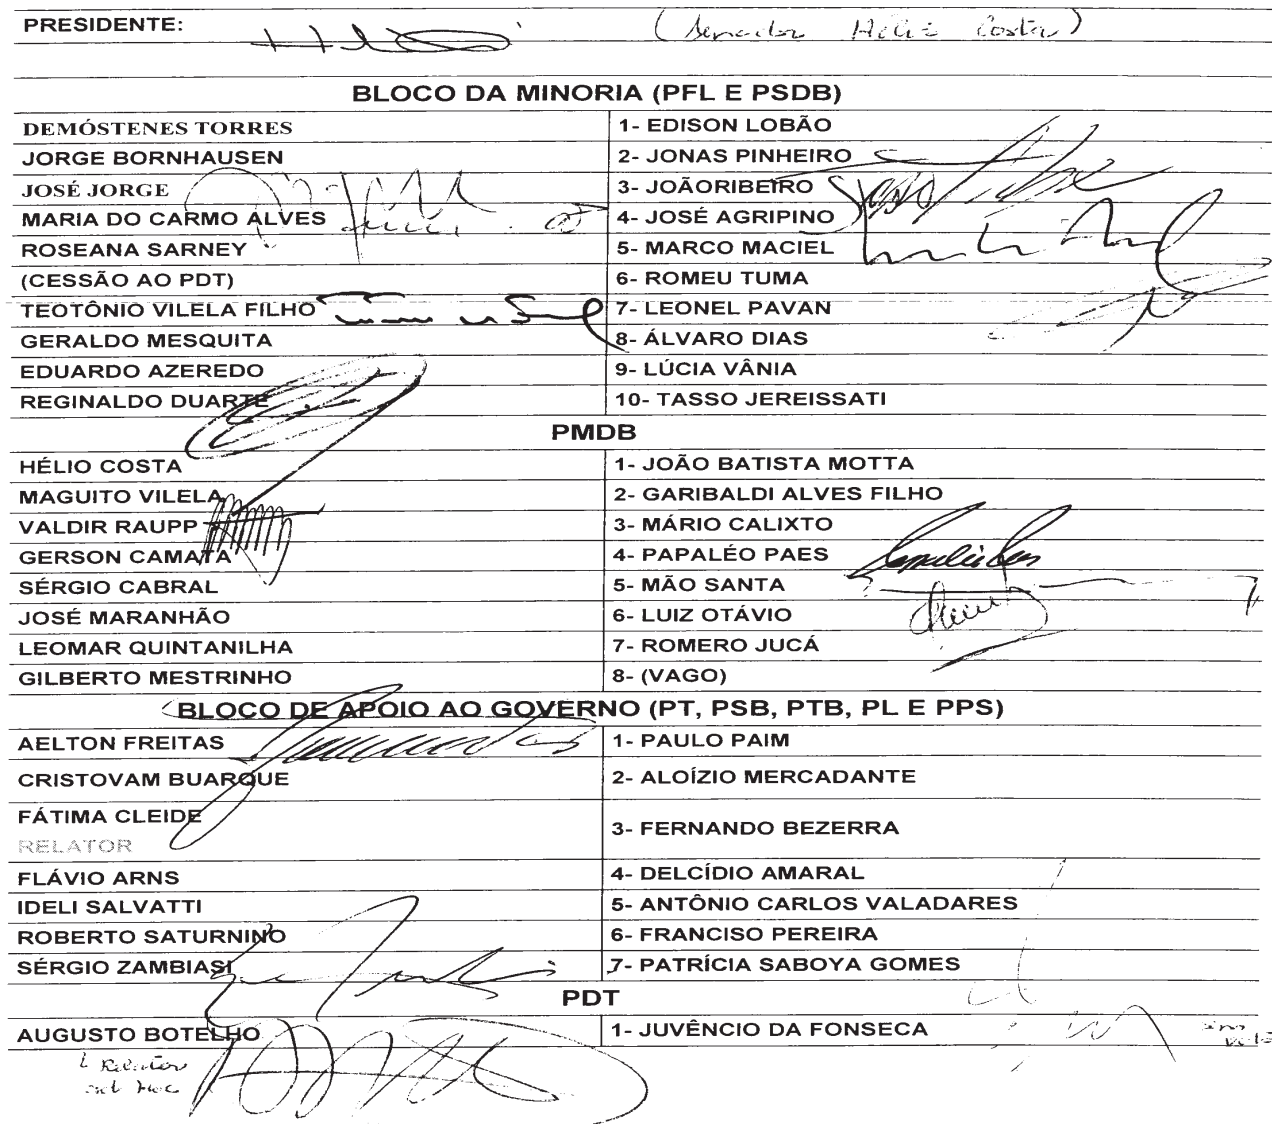 PRESIDENTE: (Senador Hélio Costa)
BLOCO DA MINORIA (PFL E PSDB)
DEMÓSTENES TORRES 1- EDISON LOBÃO
JORGE BORNHAUSEN 2- JONAS PINHEIRO
JOSÉ JORGE 3- JOÃORIBEIRO
MARIA DO CARMO ALVES 4- JOSÉ AGRIPINO
ROSEANA SARNEY 5- MARCO MACIEL
(CESSÃO AO PDT) 6- ROMEU TUMA
TEOTÔNIO VILELA FILHO 7- LEONEL PAVAN
GERALDO MESQUITA 8- ÁLVARO DIAS
EDUARDO AZEREDO 9- LÚCIA VÂNIA
REGINALDO DUARTE 10- TASSO JEREISSATI
PMDB
HÉLIO COSTA 1- JOÃO BATISTA MOTTA
MAGUITO VILELA 2- GARIBALDI ALVES FILHO
VALDIR RAUPP 3- MÁRIO CALIXTO
GERSON CAMATA 4- PAPALÉO PAES
SÉRGIO CABRAL 5- MÃO SANTA
JOSÉ MARANHÃO 6- LUIZ OTÁVIO
LEOMAR QUINTANILHA 7- ROMERO JUCÁ
GILBERTO MESTRINHO 8- (VAGO)
BLOCO DE APOIO AO GOVERNO (PT, PSB, PTB, PL E PPS)
AELTON FREITAS 1- PAULO PAIM
CRISTOVAM BUARQUE 2- ALOÍZIO MERCADANTE
FÁTIMA CLEIDE
RELATOR 3- FERNANDO BEZERRA
FLÁVIO ARNS 4- DELCÍDIO AMARAL
IDELI SALVATTI 5- ANTÔNIO CARLOS VALADARES
ROBERTO SATURNINO 6- FRANCISO PEREIRA
SÉRGIO ZAMBIASI 7- PATRÍCIA SABOYA GOMES
PDT
AUGUSTO BOTELHO 1- JUVÊNCIO DA FONSECA
Relator
ad hoc